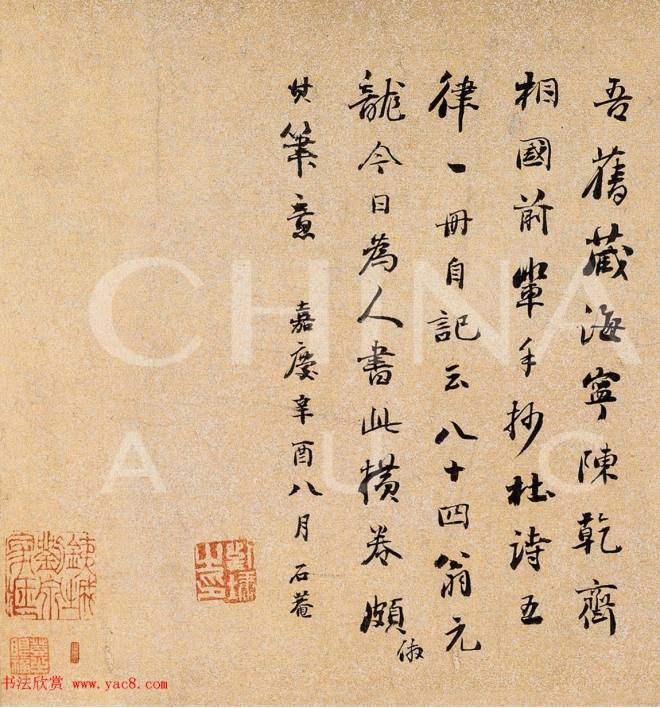 吾舊藏海寧陳乾齊
相國前輩手抄杜詩五
律一冊自記云八十四翁元
龍今日為人書此橫卷頗倣
其筆意 嘉慶辛酉八月 石菴
劉墉之印
CHINA
书法欣赏 www.yac8.com